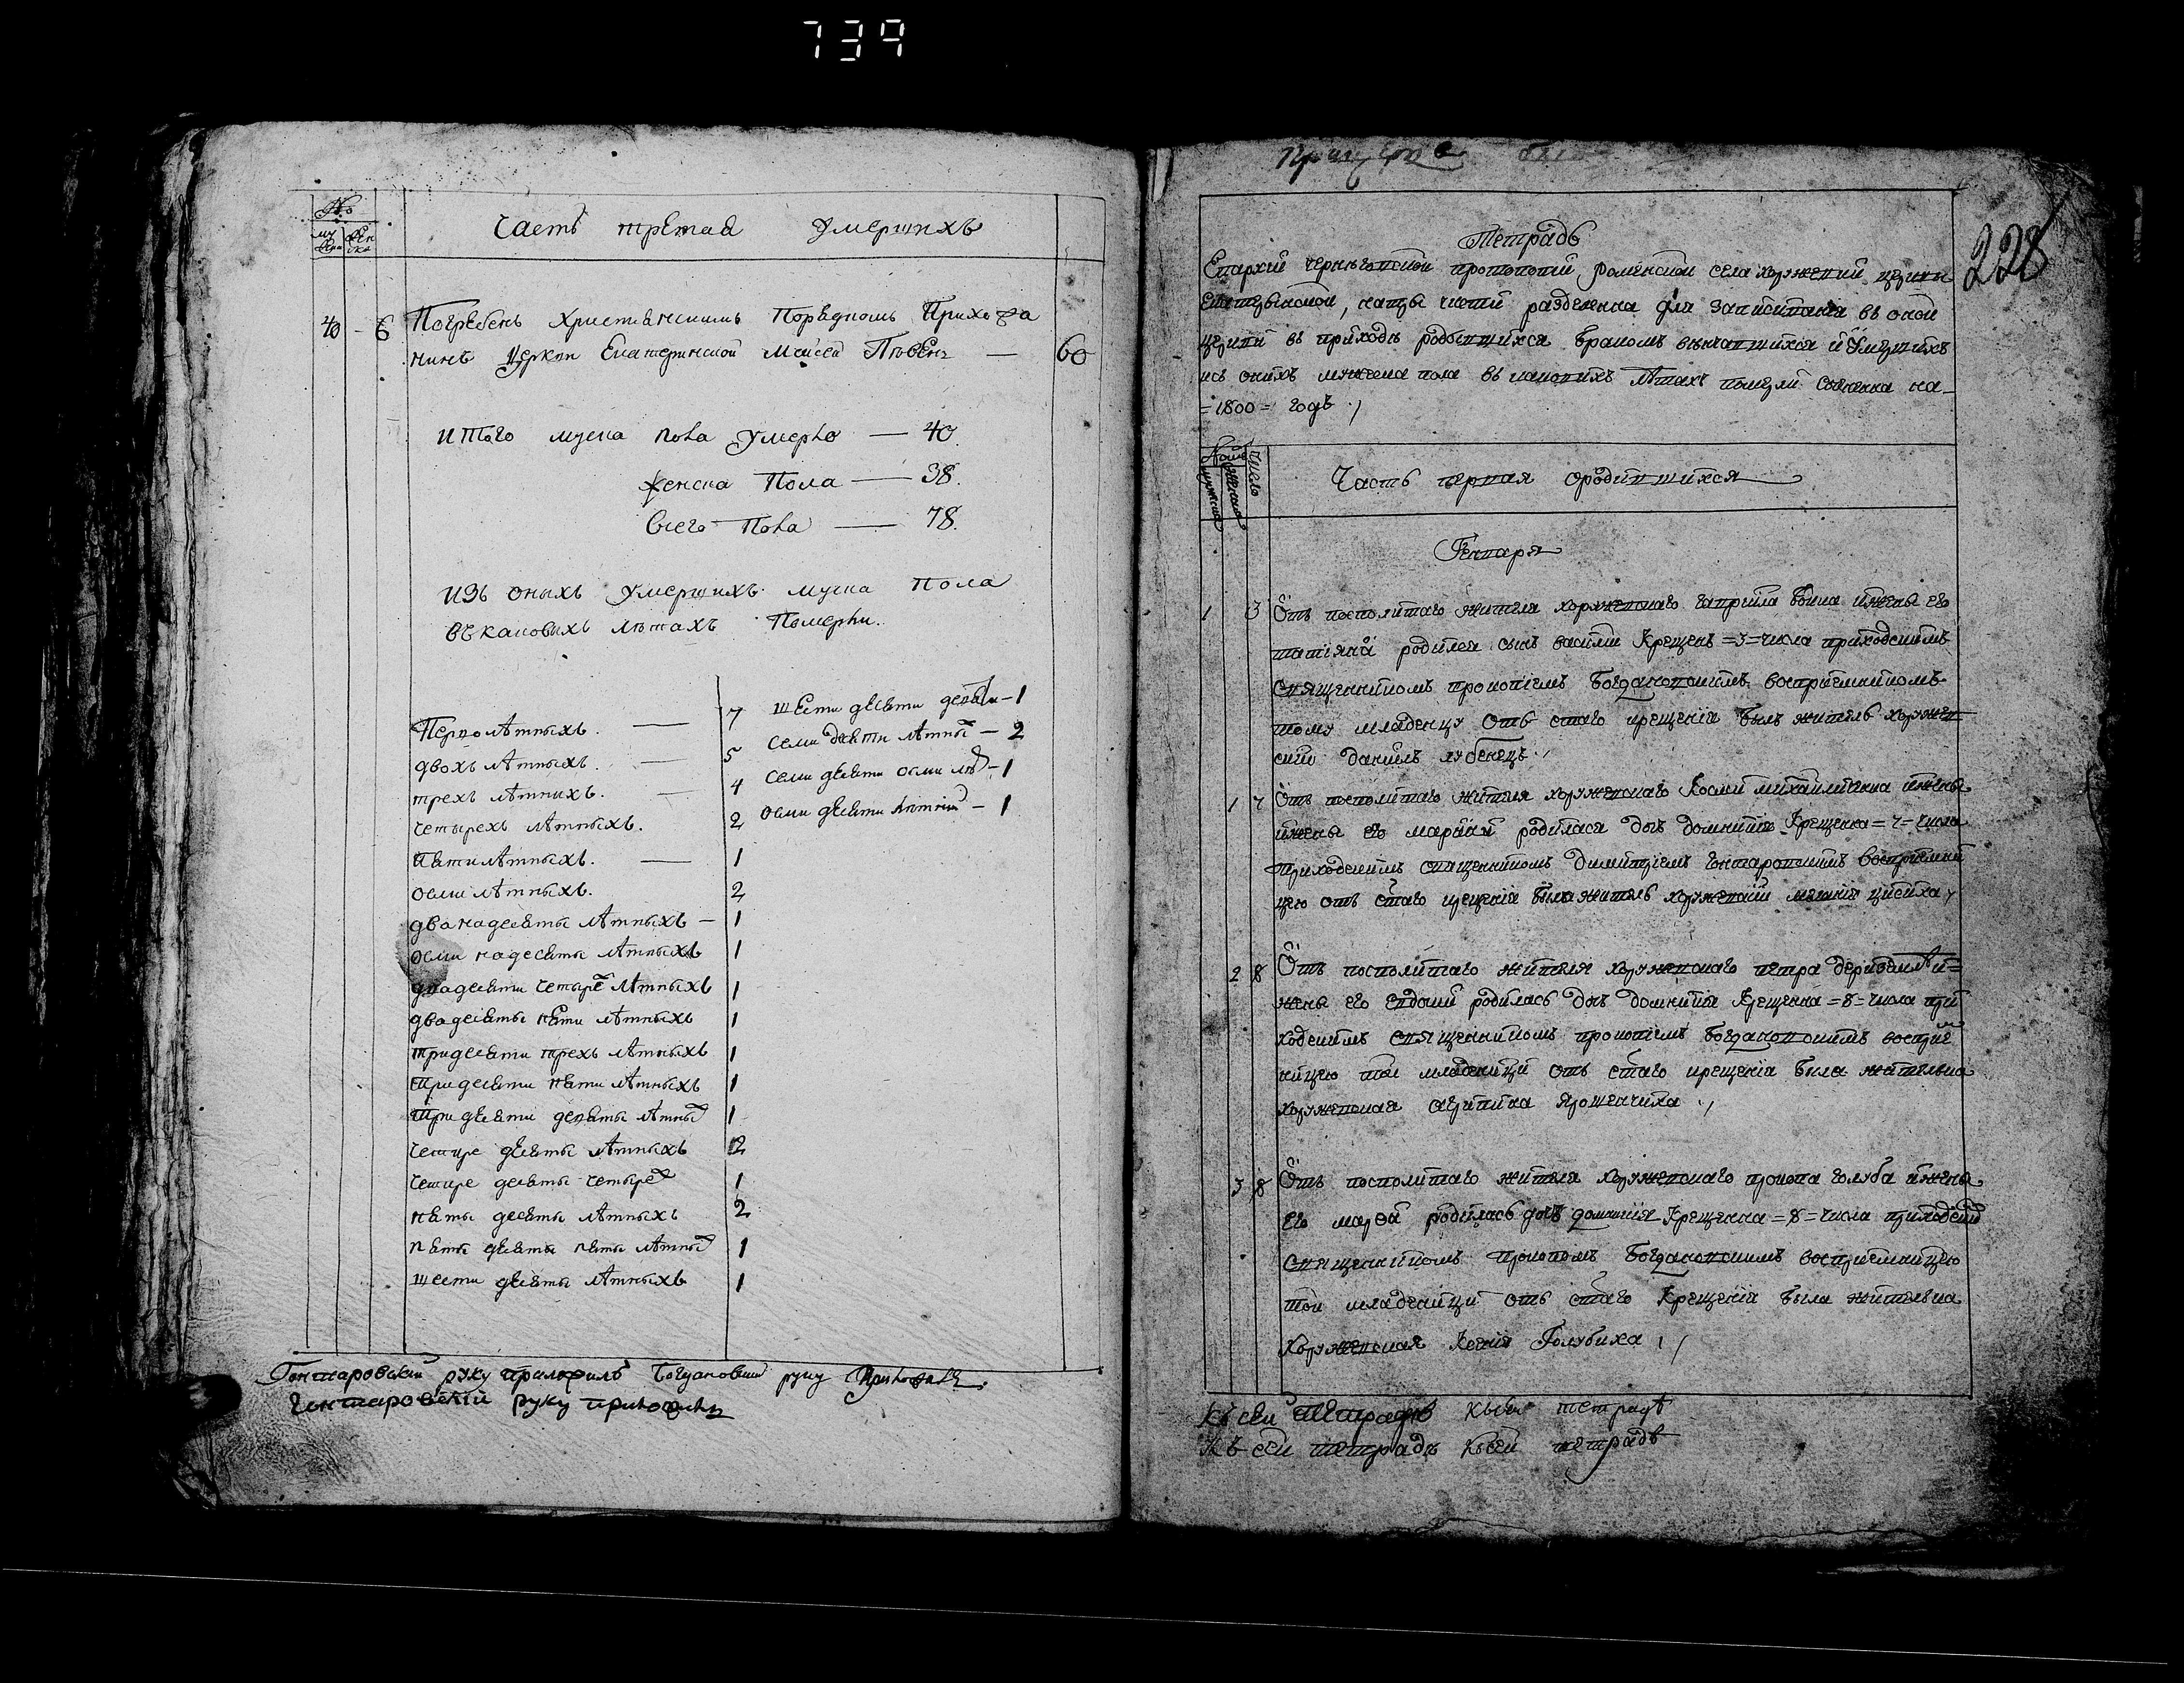 739
№
му жеска
жен ска
Часть третая умершихъ
40 - 6 Погребенъ христианскимъ порядкомъ прихожа
нинъ церкви Екатеринской Моисей — 60
итого муска пола умерло — 40.
женска пола — 38.
всего пола — 78.
изъ оныхъ умершихъ муска пола
въ каковыхъ лѣтахъ померли.
Перволѣтныхъ. — 7
двохъ лѣтныхъ. — 5
трехъ лѣтнихъ. — 4
четырехъ лѣтныхъ. 2
пятилѣтныхъ. — 1
осми лѣтныхъ. 2
дванадесяты лѣтныхъ — 1
осми надесяты лѣтныхъ 1
двадесяти четыре лѣтныхъ 1
двадесяты пяти лѣтныхъ 1
тридесяти трехъ лѣтныхъ 1
тридесяти пяти лѣтныхъ 1
тридесяти девяты лѣтных 1
четире десяты лѣтныхъ 2
четире десяты четырех 1
пяты десяты лѣтныхъ 2
пяты десяты пяты лѣтных 1
шести десяты лѣтныхъ 1
шести десяти девяти — 1
семи десяти лѣтных — 2
семи десяти осми лѣт — 1
осми десяти лѣтних — 1
Гонтаровский руку приложилъ Богдановский руку приложилъ.
Гонтаровский руку приложилъ
228
Тетрадь
Епархии черниговской протопопии роменской села коружевки церкви
на три части разделенна для записивания въ оной
церкви въ приходѣ родившихся бракомъ венчавшихся и умершихъ
изъ онихъ мужеска пола въ каковихъ лѣтахъ померли сочиненна на
= 1800 = годъ
число
мужеска
женска
Часть первая о родившихся
Генваря
1 3 Отъ посполитаго жителя коружевскаго гавриила и жены его
татияны родился сынъ василий крещенъ =3= числа приходскимъ
священникомъ прокопиемъ Богдановскимъ восприемникомъ
тому младенцу отъ стаго крещения былъ житель коружев
ский даниилъ лубенецъ
1 7 Отъ посполитаго жителя коружевскаго Космы и жены
жены его марии родилася дочь домникия Крещенна =7= числа
приходскимъ священникомъ димитриемъ Гонтаровскимъ восприемни
цею отъ стаго крещения была житель коружевский
2 8 Отъ посполитаго жителя коружевскаго петра и
жены его евдокии родилась дочь домникия Крещенна =8= числа при
ходскимъ священникомъ прокопиемъ Богдановскимъ восприем
ницею той младеници отъ стаго крещения была жителька
коружевская агрипина ярошенчиха
3 8 Отъ посполитаго жителя коружевскаго прокопа голуба и жены
его марфы родилась дочь домникия Крещенна =8= числа приходским
священникомъ прокопомъ Богдановскимъ восприемницею
той младеници отъ стаго Крещения была жителька
Коружевская Ксения Голубиха
Къ сей тетрадѣ къ сей тетрадѣ
Къ сей тетрадѣ къ сей тетрадѣ